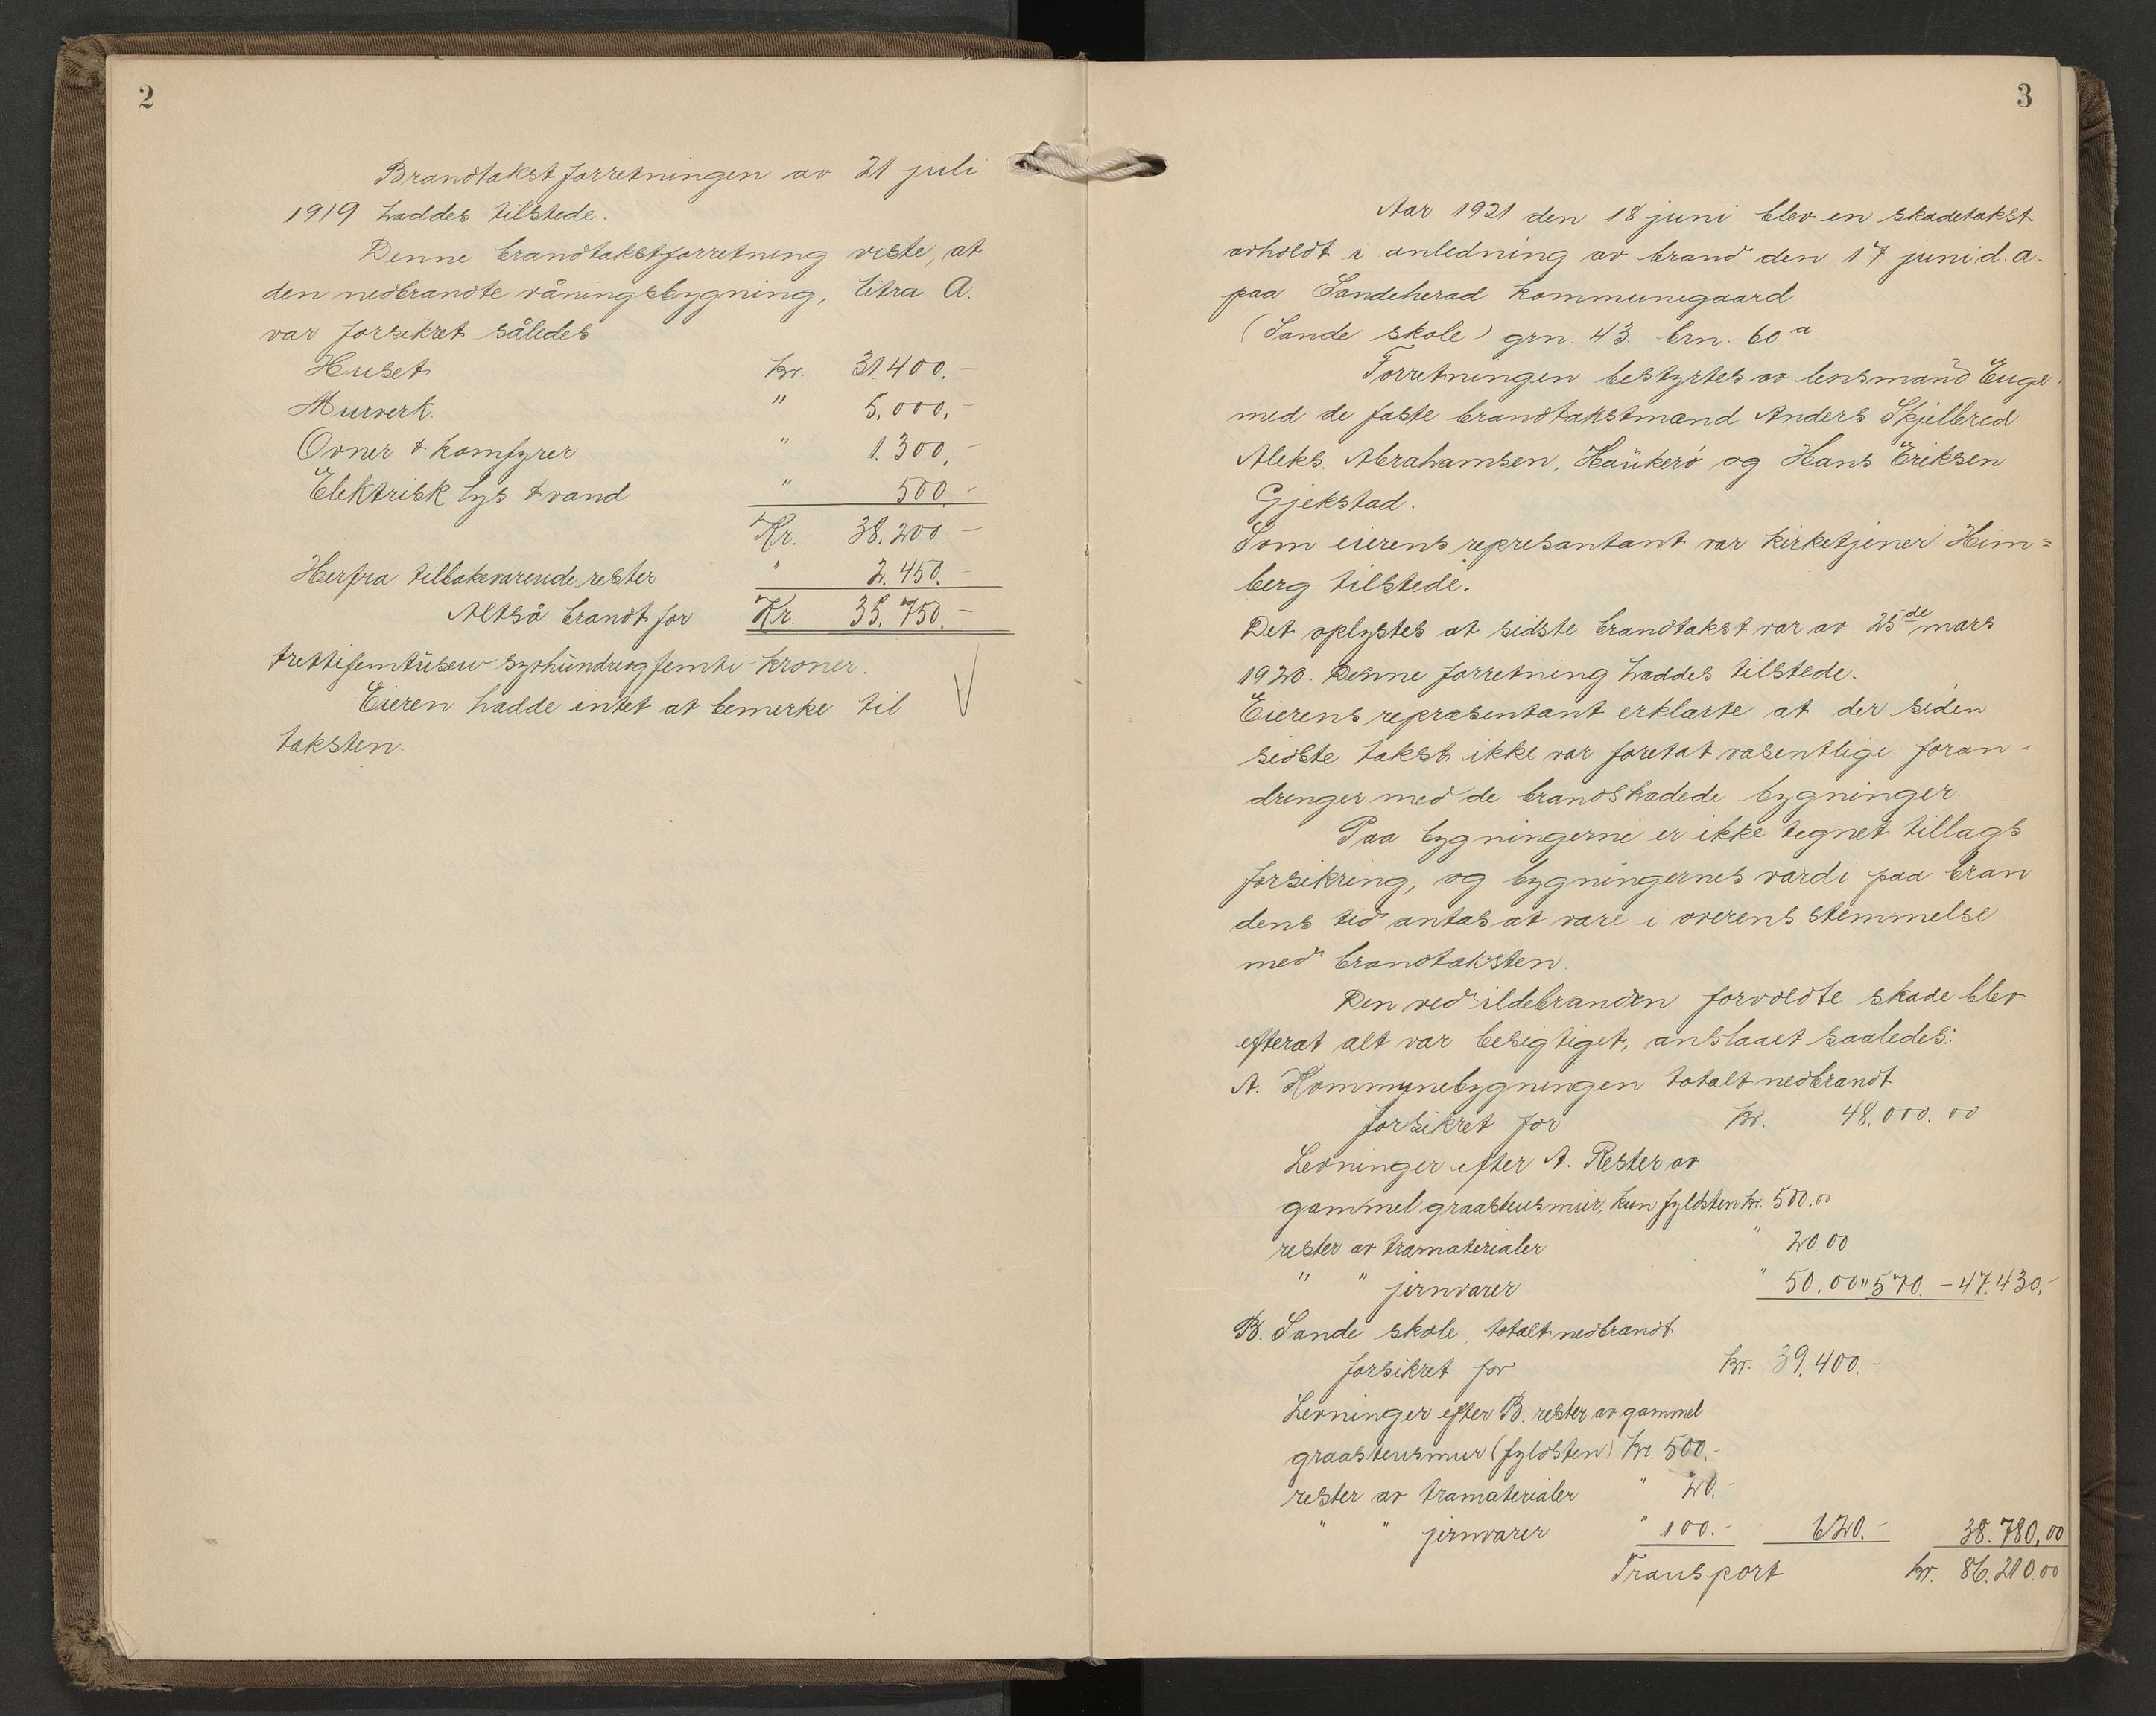 2
Brandtakstforretningen av 21 juli
1919 haddes tilstede.
Denne brandtakstforretning viste, at
den nedbrandte våningsbygning, litra A.
var forsikret således
Huset kr. 31.400.-
Murverk. " 5.000.-
Ovner & komfyrer " 1.300.-
Elektrisk lys & vand " 500.-
Kr. 38.200.-
Herfra tilbakevarende rester " 2.450.-
Altså brandt for Kr. 35.750.-
trettifemtusen syvhundreogfemti kroner.
Eieren hadde intet at bemerke til
taksten.
3
Aar 1921 den 18 juni blev en skadetakst
avholdt i anledning av brand den 17 juni d.a.
paa Sandeherad kommunegaard
(Sande skole) grn. 43. brn. 60 a
Forretningen bestyrtes av lensmand Enge
med de faste brandtakstmænd Anders Skjellered
Aleks. Abrahamsen, Haukerø og Hans Eriksen
Gjekstad.
Som eierens represantant var kirketjener Him=
berg tilstede.
Det oplystes at sidste brandtakst var av 25de mars
1920. Denne forretning haddes tilstede.
Eierens repræsentant erklærte at der siden
sidste takst ikke var foretat væsentlige foran-
dringer med de brandskadede bygninger.
Paa bygningerne er ikke tegnet tillægs
forsikring, og bygningernes værdi paa bran
dens tid antas at være i overensstemmelse
med brandtaksten.
Den ved ildebranden forvoldte skade blev
efterat alt var besigtiget, anslaaet saaledes:
A. Kommunebygningen totalt nedbrandt
forsikret for kr. 48.000.00
Levninger efter A. Rester av
gammel graastensmur, kun fyldsten kr. 500.00
rester av træmaterialer " 20.00
" " jernvarer " 50.00 " 570. - 47.430.-
B. Sande skole, totalt nedbrandt
forsikret for kr. 39.400.-
Levninger efter B. rester av gammel
graastensmur (fyldsten) kr. 500.-
rester av træmaterialer " 20.-
" " jernvarer " 100.- 620.- 38.780,00
Transport kr. 86.210.00